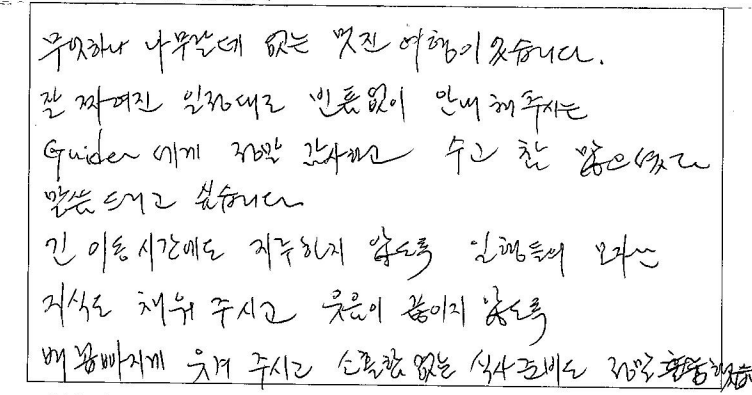 무엇하나 나무랄데 없는 멋진 여행이었습니다.
잘 짜여진 일정대로 빈틈없이 안내해 주시는
Guider 에게 정말 감사하고 수고 참 많으셨다
말씀드리고 싶습니다
긴 이동시간에도 지루하지 않도록 일행들의 모자란
지식도 채워 주시고 웃음이 끊이지 않도록
배꼽빠지게 웃겨 주시고 소홀함 없는 식사준비도 정말 훌륭했음